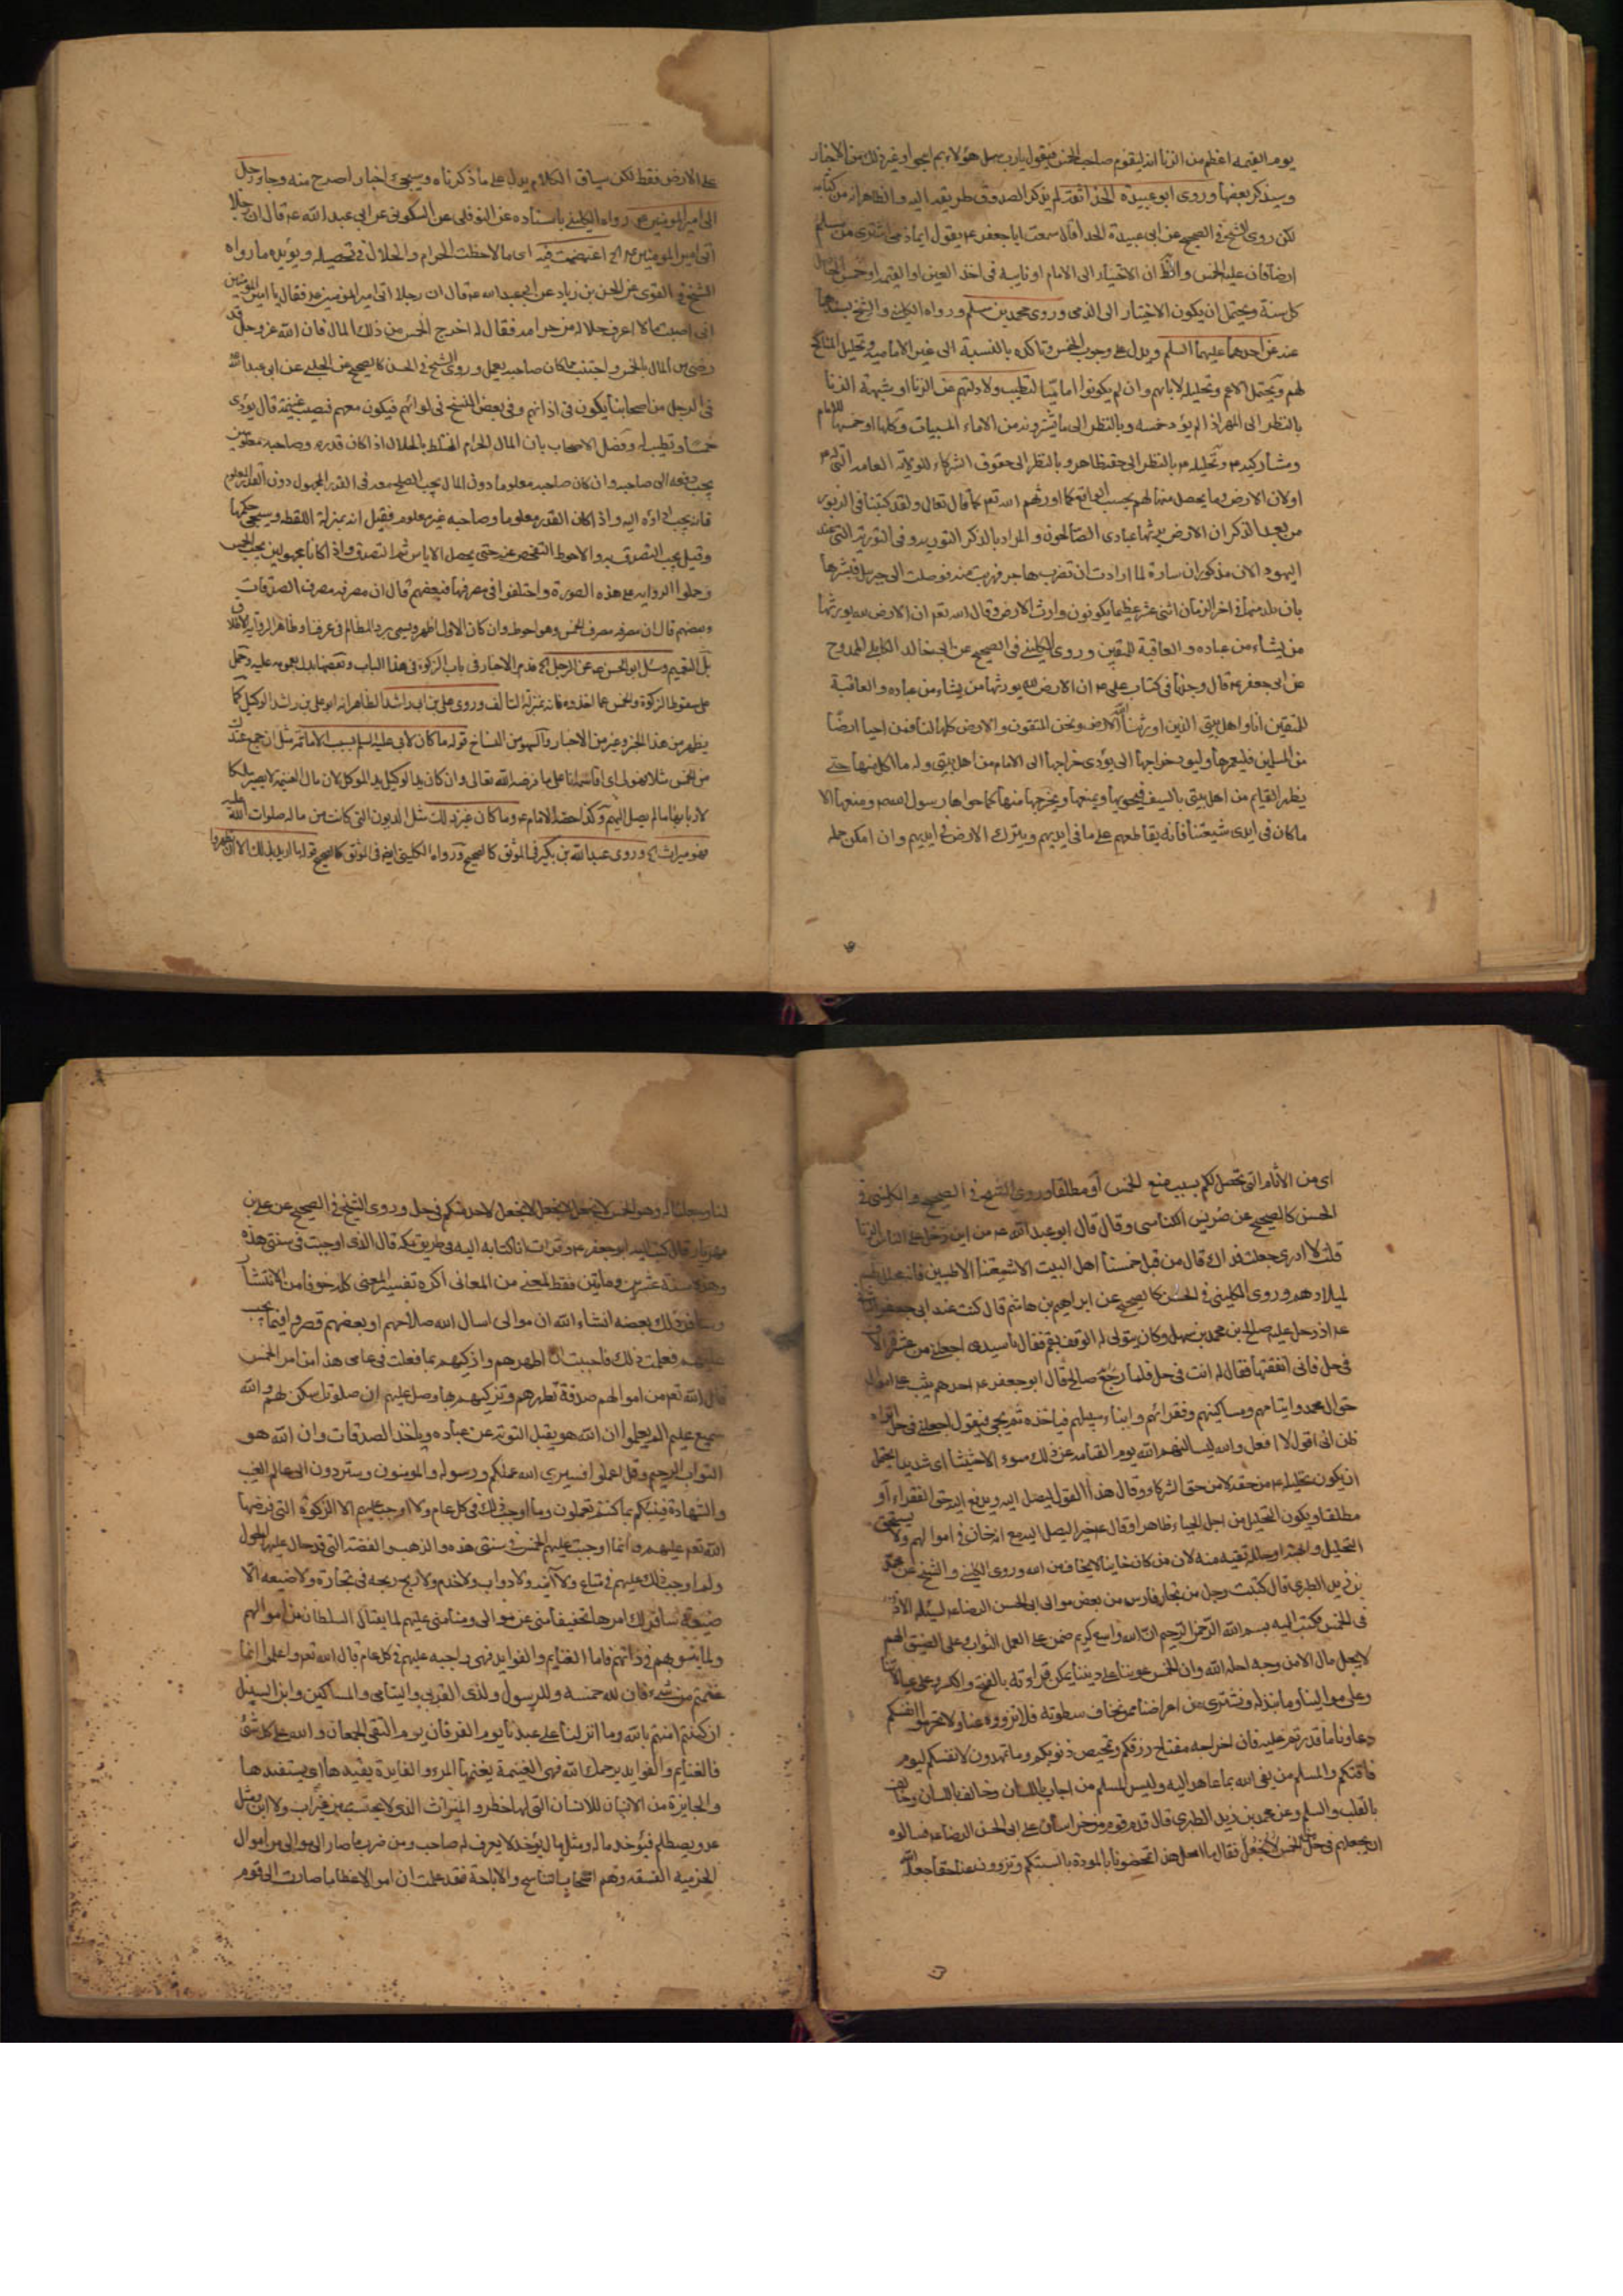 يوم القيمه اعظم من الزنا ان يقوم صاحب الخمس فيقول يا رب سل هؤلاء بم ابيحوا وغير ذلك من الاخبار
وسيذكر بعضها وروى ابو عبيدة الحذا ثقة لم يذكر الصدوق طريقه اليه والظاهر انه من كتابه
لكن روى الشيخ في الصحيح عن ابي عبيدة الحذا قال سمعت ابا جعفر ع يقول ايما ذمي اشترى من مسلم
ارضا فان عليه الخمس والظ ان الاختيار الى الامام او نايبه في اخذ العين او القيمه او خمس الحاصل
كل سنة ويحتمل ان يكون الاختيار الى الذمي وروى محمد بن مسلم ورواه الكليني والشيخ بسندهما
عنه عن احدهما عليهما السلم ويدل على وجوب الخمس وتاكده بالنسبة الى غير الامامية وتحليل المناكح
لهم ويحتمل الاعم وتحليله لابائهم وان لم يكونوا اماميا لتطيب ولادتهم عن الزنا او شبهة الزنا
بالنظر الى المهر اذا لم يؤد خمسه وبالنظر الى ما يشترونه من الاماء المسبيات وكلها او خمسها للامام
ومشاركيه ع وتحليله ع بالنظر الى حقه ظاهر وبالنظر الى حقوق الشركاء للولاية العامة التي له ع
اولان الارض وما يحصل منها لهم بحسب الواقع كما اورثهم الله تعم كما قال تعالى ولقد كتبنا في الزبور
من بعد الذكر ان الارض يرثها عبادى الصالحون والمراد بالذكر التورية وفي التورية التي عند
اليهود الان مذكور ان سارة لما ارادت ان تضرب هاجر فهربت منه فوصلت الى جبريل فبشرها
بان يلد منها في اخر الزمان اثنى عشر عظيما يكونون وارث الارض وقال الله تعم ان الارض لله يورثها
من يشاء من عباده والعاقبة للمتقين وروى الكليني في الصحيح عن ابي خالد الكابلي الممدوح
عن ابي جعفر ع قال وجدنا في كتاب علي ع ان الارض لله يورثها من يشاء من عباده والعاقبة
للمتقين انا واهل بيتي الذين اورثنا الله الارض ونحن المتقون والارض كلها لنا فمن احيا ارضا
من المسلمين فليعمرها وليؤد خراجها الى يؤدى خراجها الى الامام من اهل بيتي وله ما اكل منها حتى
يظهر القايم من اهل بيتي بالسيف فيحويها ويمنعها ويخرجهم منها كما حواها رسول الله ص ومنعها الا
ما كان في ايدى شيعتنا فانه يقاطعهم على ما في ايديهم ويترك الارض في ايديهم وان امكن حمله
على الارض فقط لكن سياق الكلام يدل على ما ذكرناه وسيجئ اخبار اصرح منه وجاء رجل
الى امير المومنين ع رواه الكليني باسناده عن النوفلي عن السكوني عن ابي عبد الله ع قال ان رجلا
اتى امير المومنين ع الخ اغمضت فيه اى ما لاحظت الحرام والحلال في تحصيله ويؤيده ما رواه
الشيخ في القوى عن الحسن بن زياد عن ابي عبد الله ع قال ان رجلا اتى امير المومنين ع فقال يا امير المؤمنين
اني اصبت مالا لا اعرف حلاله من حرامه فقال له اخرج الخمس من ذلك المال فان الله عز وجل قد
رضى من المال بالخمس واجتنب ما كان صاحبه يعمل وروى الشيخ في الحسن كالصحيح عن الحلبي عن ابي عبد الله
في الرجل من اصحابنا يكون في اذانهم وفي بعض النسخ في لوائهم فيكون معهم فيصيب غنيمة قال يؤدى
خمسا ويطيب له وفصل الاصحاب بان المال الحرام المختلط بالحلال اذا كان قدره وصاحبه معلومين
يجب دفعه الى صاحبه وان كان صاحبه معلوما دون المال يجب الصلح معه في القدر المجهول دون القدر المعلوم
فانه يجب اداؤه اليه واذا كان القدر معلوما وصاحبه غير معلوم فقيل انه بمنزلة اللقطه وسيجئ حكمها
وقيل يجب التصدق به والاحوط التفحص عنه حتى يحصل الاياس ثم التصدق واذا كانا مجهولين يجب الخمس
وحملوا الروايه على هذه الصورة واختلفوا في مصرفها فبعضهم قال ان مصرفه مصرف الصدقات
وبعضهم قال ان مصرفه مصرف الخمس وهو احوط وان كان الاول اظهر ويسمى برد المظالم في عرفنا وظاهر الرواية الاطلاق
بل التعميم وسئل ابو الحسن ع عن الرجل الخ تقدم الاخبار في باب الزكوة في هذا الباب وبعضها يدل بعمومه عليه وتحمل
على سقوط الزكوة والخمس عما اخذوه فانه بمنزلة التالف وروى على بن ابي راشد الظاهر انه ابو على بن راشد الوكيل كما
يظهر من هذا الخبر وغيره من الاخبار وكانه سهو من النساخ قوله ما كان لابي عليه السلم بسبب الامامة مثل ان جمع عنده
من الخمس مثلا فهو لي اى اقاسمه انا على ما فرضه الله تعالى وان كان يد الوكيل يد الموكل لان مال الغنيمة لا يصير ملكا
لاربابها ما لم يصل اليهم وكذا حصة الامام ع وما كان غير ذلك مثل الديون التي كانت من ماله صلوات الله عليه
فهو ميراث الخ وروى عبد الله بن بكير في الموثق كالصحيح ورواه الكليني ايضا في الموثق كالصحيح قوله ما اريد بذلك الا ان تطهروا
اى من الاثام التي تحصل لكم بسبب منع الخمس او مطلقا وروى الشيخ في الصحيح والكليني في
الحسن كالصحيح عن ضريس الكناسى وقال قال ابو عبد الله ع من اين دخل على الناس الزنا
قلت لا ادري جعلت فداك قال من قبل خمسنا اهل البيت الا شيعتنا الاطيبين فانه محلل لهم
لميلادهم وروى الكليني في الحسن كالصحيح عن ابراهيم بن هاشم قال كنت عند ابي جعفر الثاني
ع اذ دخل عليه صالح بن محمد بن سهل وكان يتولى له الوقف بقم فقال يا سيدى اجعلني من عشرة الاف
في حل فانى انفقتها فقال له انت في حل فلما خرج صالح قال ابو جعفر ع احدهم يثب على اموال
حق ال محمد وايتامهم ومساكينهم وفقرائهم وابناء سبيلهم فياخذه ثم يجئ فيقول اجعلني في حل اتراه
ظن اني اقول لا افعل والله ليسالنهم الله يوم القيامه عن ذلك سوء الا حثيثا اى شديدا يحتمل
ان يكون تحليله ع من حقه لا من حق الشركاء وقال هذا القول ليصل اليه ويدفع اليه حق الفقراء او
مطلقا ويكون التحليل من اجل الحياء ظاهرا وقال ع خيرا ليصل اليه مع انه خان في اموالهم ولا يستحق
التحليل والهبة او حلله تقيه منه لان من كان خاينا لا يخاف من الله وروى الكليني والشيخ عن محمد
بن زيد الطبري قال كتبت رجل من تجار فارس من بعض موالى ابي الحسن الرضا ع ليسئله الاذن
في الخمس فكتب اليه بسم الله الرحمن الرحيم ان الله واسع كريم ضمن على العمل الثواب وعلى الضيق الهم
لا يحل مال الا من وجه احله الله وان الخمس عوننا على ديننا يمكن قراءته بالفتح والكسر وعلى عيالاتنا
وعلى موالينا وما نبذله ونشترى من اعراضنا ممن نخاف سطوته فلا تزووه عنا ولا تحرموا انفسكم
دعاءنا ما قدرتم عليه فان اخراجه مفتاح رزقكم وتمحيص ذنوبكم وما تمهدون لانفسكم ليوم
فاقتكم والمسلم من يفى الله بما عاهد اليه وليس المسلم من اجاب باللسان وخالف باللسان وخالف
بالقلب والسلم وعن محمد بن زيد الطبري قال قدم قوم من خراسان على ابي الحسن الرضا ع فسالوه
ان يجعلهم في حل من الخمس لا نجعل فقال ما امحل هذا تمحضونا بالمودة بالسنتكم وتزوون عنا حقا جعله الله
لنا وجعلنا له وهو الخمس لا نجعل لا نجعل لا نجعل لاحد منكم في حل وروى الشيخ في الصحيح عن على بن
مهزيار قال كتب اليه ابو جعفر ع وقرات انا كتابه اليه في طريق مكه قال الذى اوجبت في سنتى هذه
وهذه سنة عشرين ومايتين فقط لمعنى من المعانى اكره تفسير المعنى كله خوفا من الانتشار
وسافسر لك بعضه انشاء الله ان موالى اسال الله صلاحهم او بعضهم قصروا فيما يجب
عليهم فعلمت ذلك فاحببت ان اطهرهم وازكيهم بما فعلت في عامى هذا من امر الخمس
قال الله تعم من اموالهم صدقة تطهرهم وتزكيهم بها وصل عليهم ان صلوتك سكن لهم والله
سميع عليم الم يعلموا ان الله هو يقبل التوبة عن عباده وياخذ الصدقات وان الله هو
التواب الرحيم وقل اعملوا فسيرى الله عملكم ورسوله والمومنون وستردون الى عالم الغيب
والشهادة فينبئكم بما كنتم تعملون وما اوجب ذلك في كل عام ولا اوجب عليهم الا الزكوة التي فرضها
الله تعم عليهم وانما اوجبت عليهم الخمس في سنتى هذه والذهب والفضة التي قد حال عليها الحول
ولم اوجب ذلك عليهم في متاع ولا آنية ولا دواب ولا خدم ولا ربح ربحه في تجارة ولا ضيعه الا
ضيعة سافسر لك امرها تخفيفا منى عن موالى ومنا منى عليهم لما يغتال السلطان من اموالهم
ولما ينوبهم في ذاتهم فاما الغنايم والفوايد فهى واجبه عليهم في كل عام قال الله تعم واعلموا انما
غنمتم من شيء فان لله خمسه وللرسول ولذى القربى واليتامى والمساكين وابن السبيل
ان كنتم امنتم بالله وما انزلنا على عبدنا يوم الفرقان يوم التقى الجمعان والله على كل شئ
فالغنايم والفوايد يرحمك الله فهى الغنيمة يغنمها المرء والفايدة يفيدها اى يستفيدها
والجايزة من الانسان للانسان التي لها خطر والميراث الذى لا يحتسب من غير اب ولا ابن ومثل
عدو يصطلم فيؤخذ ماله ومثل مال يؤخذ لا يعرف له صاحب ومن ضرب ما صار الى موالى من اموال
الخرمية الفسقه وهم اصحاب التناسخ والاباحة فقد علمت ان اموالا عظاما صارت الى قوم